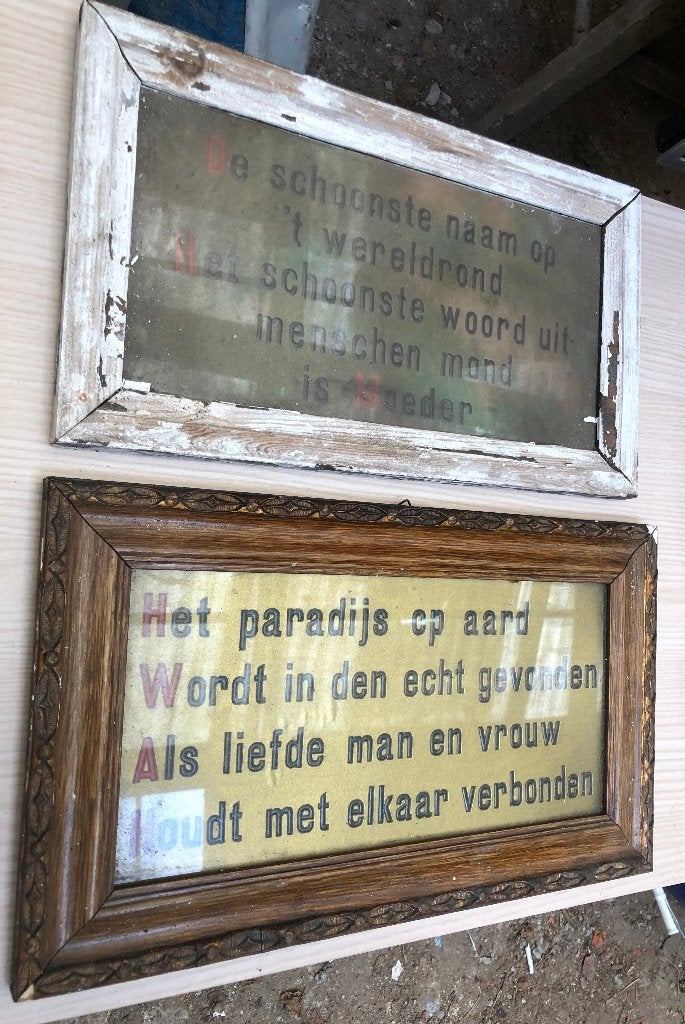 De schoonste naam op
't wereldrond
Het schoonste woord uit
menschen mond
is Moeder
Het paradijs op aard
Wordt in den echt gevonden
Als liefde man en vrouw
Houdt met elkaar verbonden